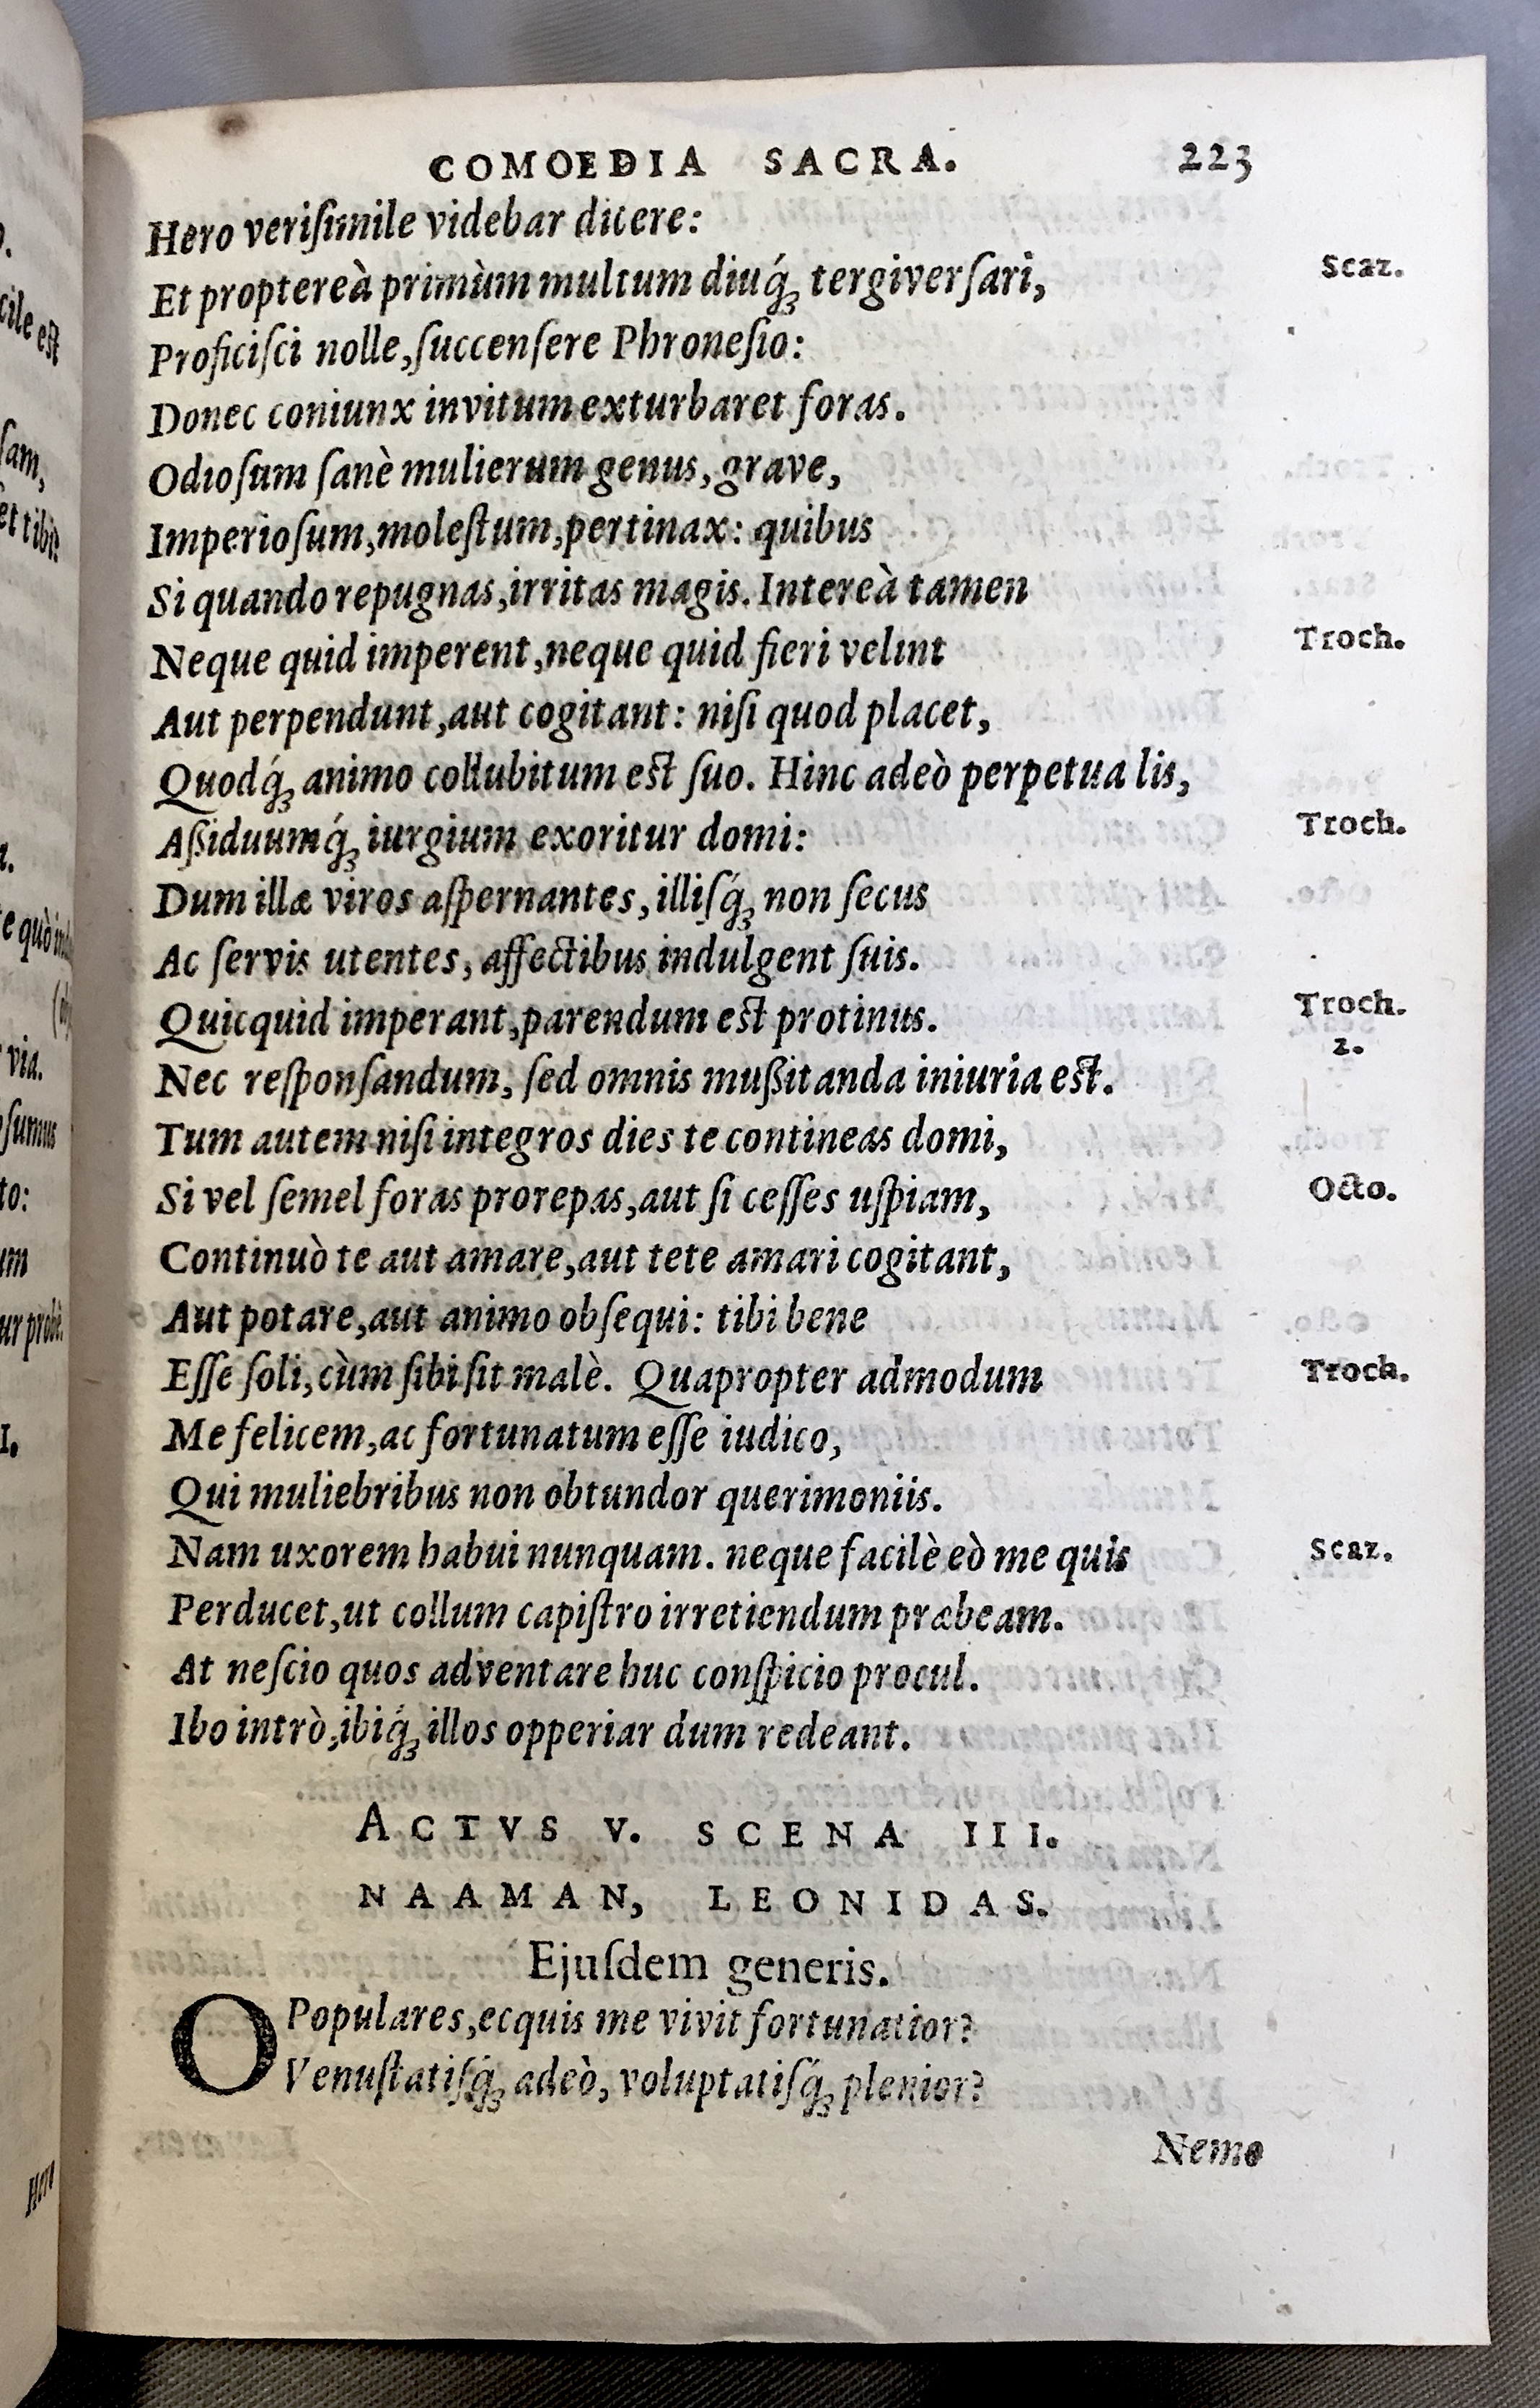 COMOEDIA SACRA. 223
Hero veriſimile videbar dicere:
Et proptereà primùm multum diuq́ꝫ tergiverſari, Scaz.
Proficiſci nolle, ſuccenſere Phroneſio:
Donec coniunx invitum exturbaret foras.
Odioſum ſanè mulierum genus, grave,
Imperioſum, moleſtum, pertinax: quibus
Si quando repugnas, irritas magis. Intereà tamen
Neque quid imperent, neque quid fieri velint Troch.
Aut perpendunt, aut cogitant: niſi quod placet,
Quodq́ꝫ animo collubitum eſt ſuo. Hinc adeò perpetua lis,
Aßiduumq́ꝫ iurgium exoritur domi: Troch.
Dum illæ viros aſpernantes, illiſq́ꝫ non ſecus
Ac ſervis utentes, affectibus indulgent ſuis.
Quicquid imperant, parendum eſt protinus. Troch.
2.
Nec reſponſandum, ſed omnis mußitanda iniuria eſt.
Tum autem niſi integros dies te contineas domi,
Si vel ſemel foras prorepas, aut ſi ceſſes uſpiam, Octo.
Continuò te aut amare, aut tete amari cogitant,
Aut potare, aut animo obſequi: tibi bene
Eſſe ſoli, cùm ſibi ſit malè. Quapropter admodum Troch.
Me felicem, ac fortunatum eſſe iudico,
Qui muliebribus non obtundor querimoniis.
Nam uxorem habui nunquam. neque facilè eò me quis Scaz.
Perducet, ut collum capiſtro irretiendum præbeam.
At neſcio quos adventare huc conſpicio procul.
Ibo intrò, ibiq́ꝫ illos opperiar dum redeant.
ACTVS V. SCENA III.
NAAMAN, LEONIDAS.
Ejuſdem generis.
O Populares, ecquis me vivit fortunatior?
Venuſtatiſq́ꝫ adeò, voluptatiſq́ꝫ plenior?
Nemo